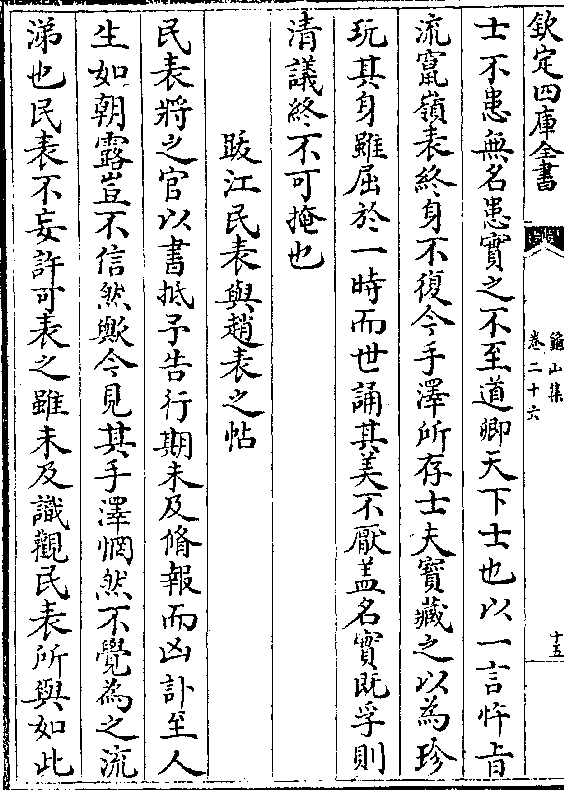 欽定四庫全書
龜山集
卷二十六
十五
士不患無名患實之不至道卿天下士也以一言忤㫖
流竄嶺表終身不復今手澤所存士夫寳藏之以為珍
玩其身雖屈於一時而世誦其美不厭盖名實既孚則
清議終不可掩也
跋江民表與趙表之帖
民表將之官以書抵予告行期未及脩報而凶訃至人
生如朝露豈不信然歟今見其手澤惘然不覺為之流
涕也民表不妄許可表之雖未及識觀民表所與如此